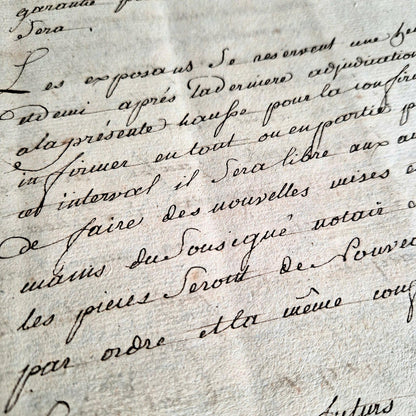 garantie p
Sera.
Les exposans Se reservent une he
et demi après la derniere adjudication
a la présente hausse pour la confir
infirmer en tout ou en partie p
cet interval il Sera libre aux a
de faire des nouvelles mises e
mains du Sousigné notair
les pieces Seront de Nouve
par ordre et la même
futurs